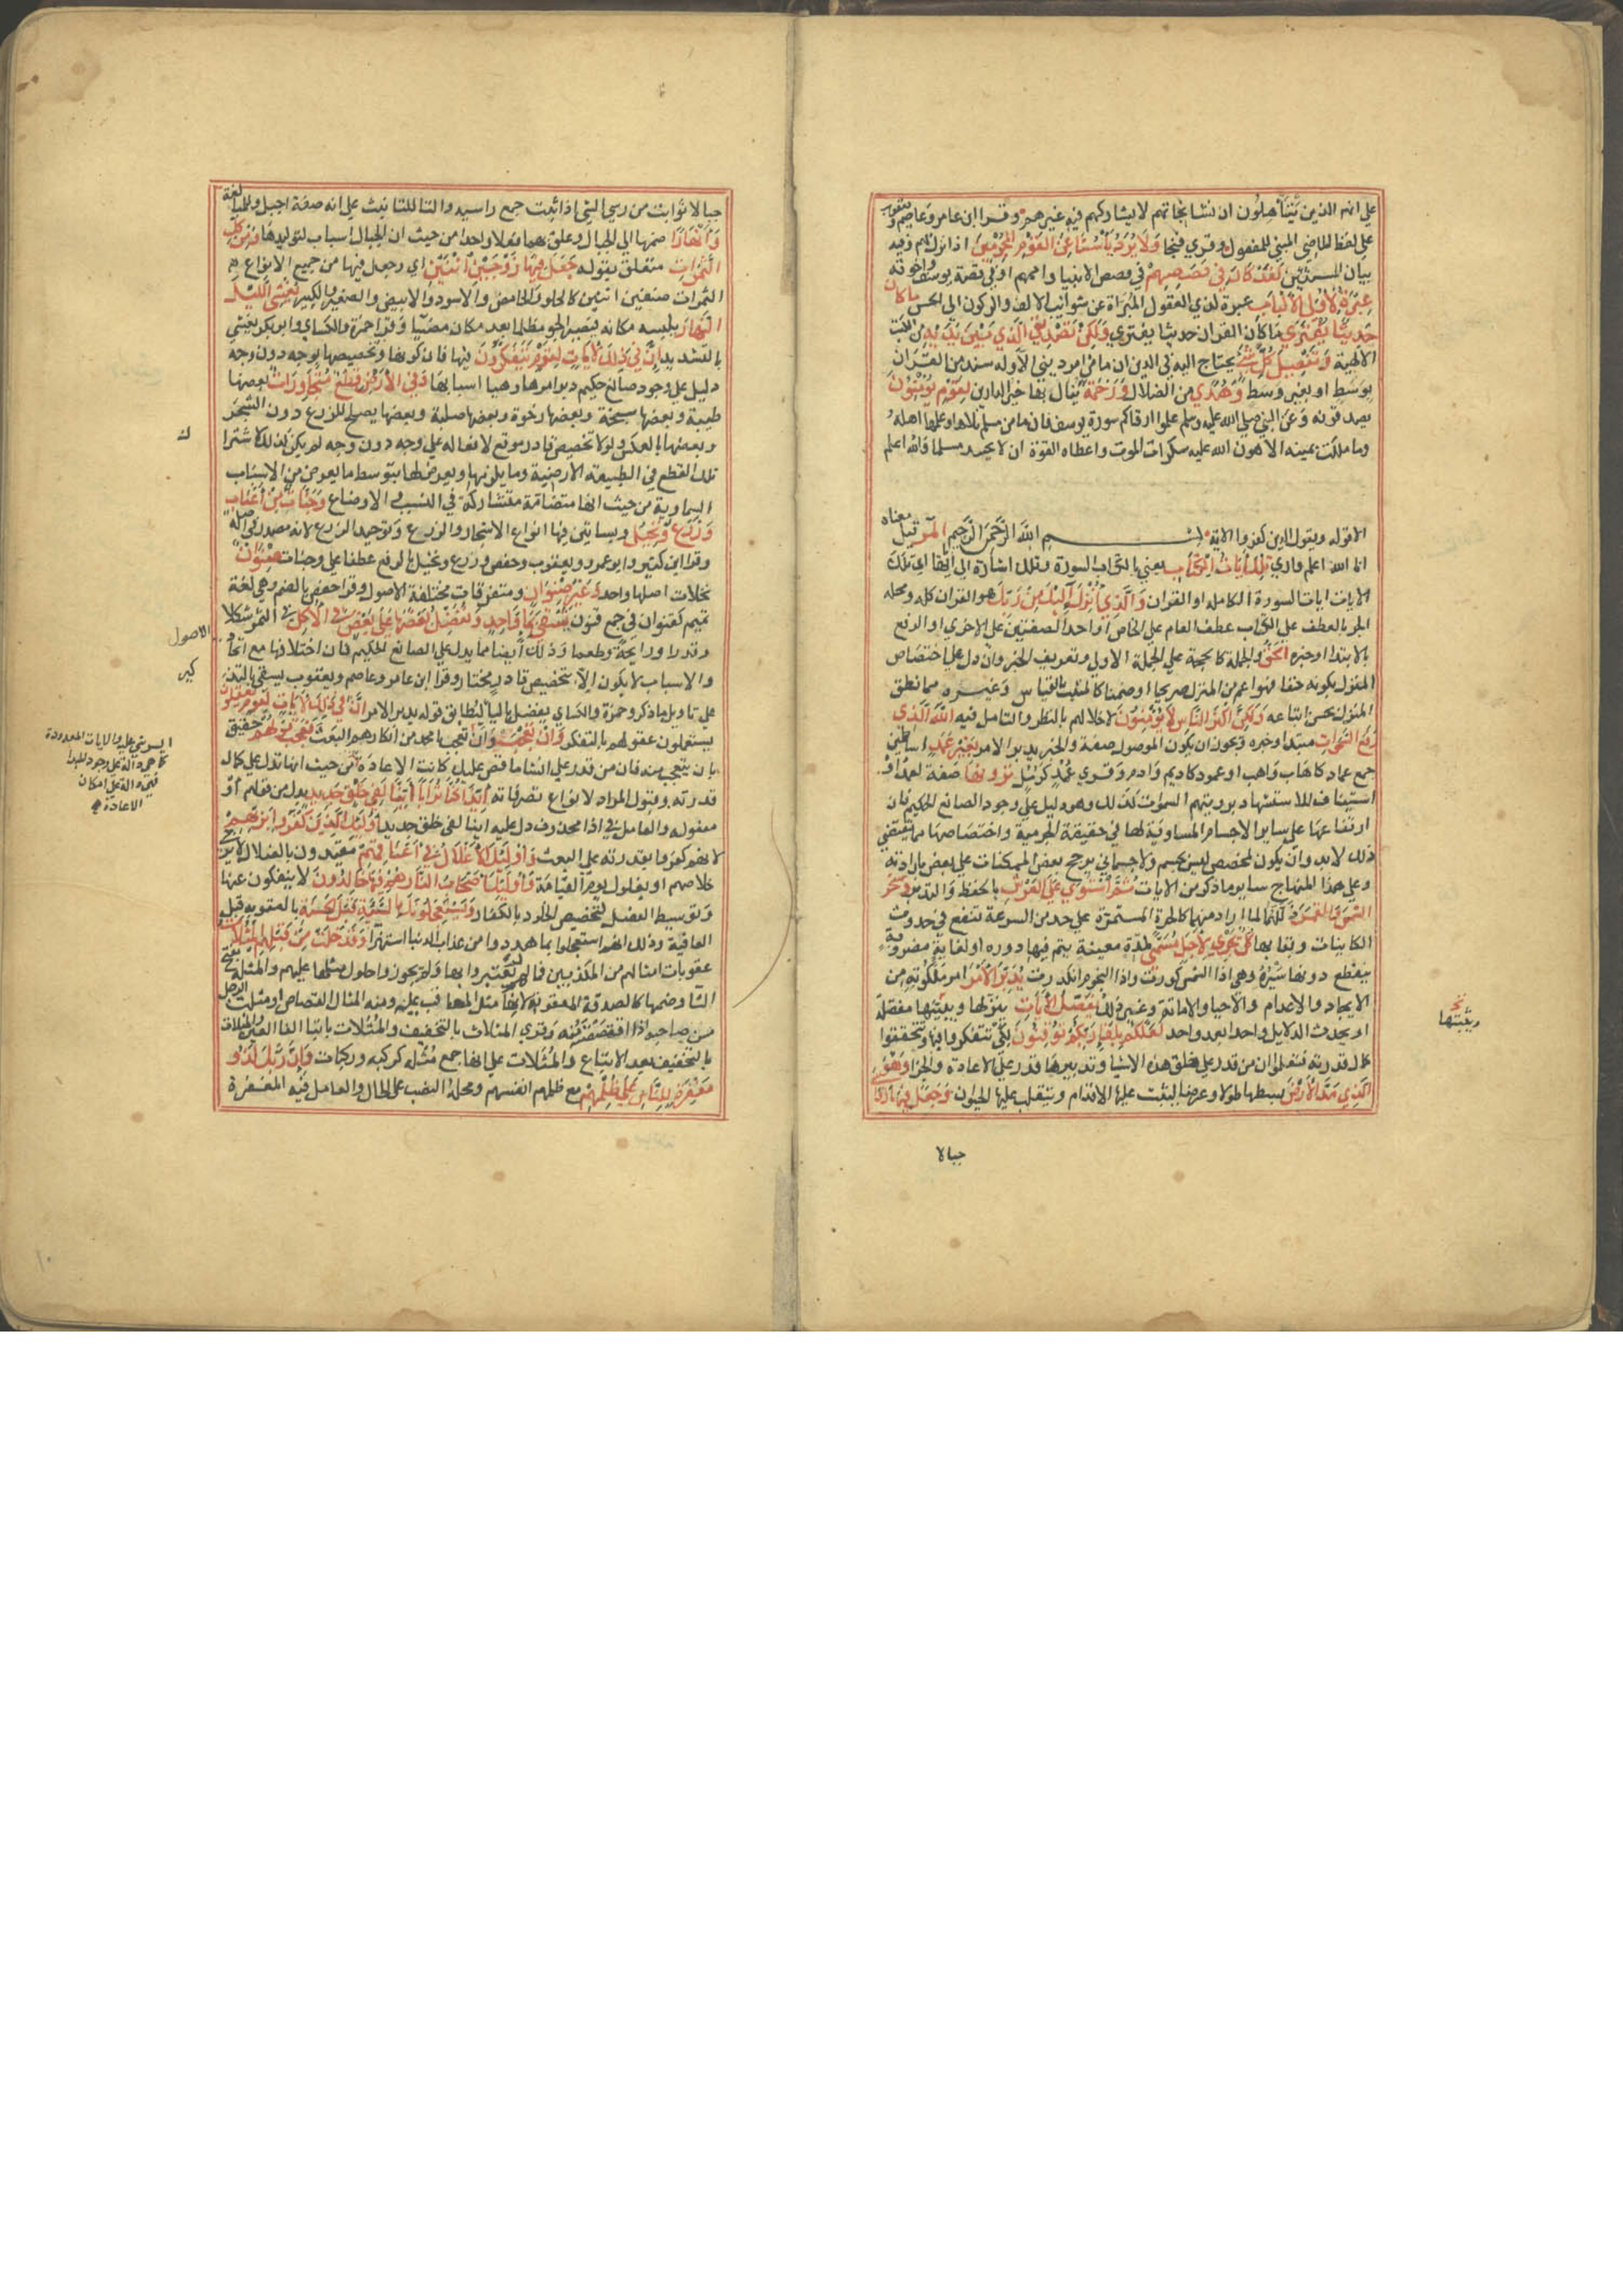 على انهم الذين يتأهلون ان نشا نجاتهم لا يشاركهم فيه غيرهم وقرا ابن عامر وعاصم ويعقوب
على لفظ الماضي المبني للمفعول وقري فنجا وَلَا يُرَدُّ بَأْسُنَا عَنِ الْقَوْمِ الْمُجْرِمِينَ اذا نزل بهم وفيه
بيان المستثنين لَقَدْ كَانَ فِي قَصَصِهِمْ في قصص الانبيا واممهم او في قصة يوسف واخوته
عِبْرَةٌ لِأُولِي الْأَلْبَابِ عبرة لذوي العقول المبراة عن شوائب الالف والركون الى الحس مَا كَانَ
حَدِيثًا يُفْتَرَى ما كان القران حديثا يفتري وَلَكِنْ تَصْدِيقَ الَّذِي بَيْنَ يَدَيْهِ من الكتب
الالهية وَتَفْصِيلَ كُلِّ شَيْءٍ يحتاج اليه في الدين اذ ما من امر ديني الا وله سند من القران
بوسط او بغير وسط وَهُدًى من الضلال وَرَحْمَةً ينال بها خير الدارين لِقَوْمٍ يُؤْمِنُونَ
يصدقونه وعن النبي صلى الله عليه وسلم علموا ارقاكم سورة يوسف فان ما من مسلم تلاها وعلمها اهله
وما ملكت يمينه الا هون الله عليه سكرات الموت واعطاه القوة ان لا يحسد مسلما والله اعلم
الا قوله ويقول الذين كفروا الاية بسم الله الرحمن الرحيم المر قيل معناه
انا الله اعلم واري تِلْكَ آيَاتُ الْكِتَابِ يعني بالكتاب السورة وتلك اشارة الى اياتها اي تلك
الايات ايات السورة الكاملة او القران وَالَّذِي أُنْزِلَ إِلَيْكَ مِنْ رَبِّكَ هو القران كله ومحله
الجر بالعطف على الكتاب عطف العام على الخاص او احد الصفتين على الاخرى او الرفع
بالابتدا وخبره الْحَقُّ والجملة كالحجة على الجملة الاولى وتعريف الخبر وان دل على اختصاص
المنزل بكونه حقا فهو اعم من المنزل صريحا او ضمنا كالمثبت بالقياس وغيره مما نطق
المنزل بحسن اتباعه وَلَكِنَّ أَكْثَرَ النَّاسِ لَا يُؤْمِنُونَ لاخلالهم بالنظر والتامل فيه اللَّهُ الَّذِي
رَفَعَ السَّمَوَاتِ مبتدا وخبره ويجوز ان يكون الموصول صفة والخبر يدبر الامر بِغَيْرِ عَمَدٍ اساطين
جمع عماد كاهاب واهب او عمود كاديم وادم وقري عُمُد كرسل تَرَوْنَهَا صفة لعمد او
استيناف للاستشهاد برويتهم السموات كذلك وهو دليل على وجود الصانع الحكيم فان
ارتفاعها على ساير الاجسام المساوية لها في حقيقة الجرمية واختصاصها بما يقتضي
ذلك لابد وان يكون لمخصص ليس بجسم ولا جسماني يرجح بعض الممكنات على بعض بارادته
وعلى هذا المنهاج ساير ما ذكر من الايات ثُمَّ اسْتَوَى عَلَى الْعَرْشِ بالحفظ والتدبير وَسَخَّرَ
الشَّمْسَ وَالْقَمَرَ ذللهما لما اراد منهما كالحركة المستمرة على حد من السرعة تنفع في حدوث
الكاينات وبقائها كُلٌّ يَجْرِي لِأَجَلٍ مُسَمًّى لمدة معينة يتم فيها دوره او لغاية مضروبة
ينقطع دونها سيره وهي اذا الشمس كورت واذا النجوم انكدرت يُدَبِّرُ الْأَمْرَ امر ملكوته من
الايجاد والاعدام والاحيا والاماتة وغير ذلك يُفَصِّلُ الْآيَاتِ ينزلها ويبينها مفصلة
او يحدث الدلايل واحدا بعد واحد لَعَلَّكُمْ بِلِقَاءِ رَبِّكُمْ تُوقِنُونَ لكي تتفكروا فيها وتتحققوا
كمال قدرته فتعلموا ان من قدر على خلق هذه الاشيا وتدبيرها قدر على الاعادة والجزا وَهُوَ
الَّذِي مَدَّ الْأَرْضَ بسطها طولا وعرضا لتثبت عليها الاقدام ويتقلب عليها الحيوان وَجَعَلَ فِيهَا رَوَاسِيَ
جبالا
جبالا ثوابت من رسي الشي اذا ثبت جمع راسية والتا للتانيث على انه صفة اجبل وللمبالغة
وَأَنْهَارًا ضمها الى الجبال وعلق بهما فعلا واحدا من حيث ان الجبال اسباب لتولدها وَمِنْ كُلِّ
الثَّمَرَاتِ متعلق بقوله جَعَلَ فِيهَا زَوْجَيْنِ اثْنَيْنِ اي وجعل فيها من جميع الانواع
الثمرات صنفين اثنين كالحلو والحامض والاسود والابيض والصغير والكبير يُغْشِي اللَّيْلَ
النَّهَارَ يلبسه مكانه فيصير الجو مظلما بعد ما كان مضيئا وقرا حمزة والكسائي وابو بكر يغشي
بالتشديد إِنَّ فِي ذَلِكَ لَآيَاتٍ لِقَوْمٍ يَتَفَكَّرُونَ فيها فان تكونها وتخصيصها بوجه دون وجه
دليل على وجود صانع حكيم دبر امرها وهيا اسبابها وَفِي الْأَرْضِ قِطَعٌ مُتَجَاوِرَاتٌ بعضها
طيبة وبعضها سبخة وبعضها رخوة وبعضها صلبة وبعضها يصلح للزرع دون الشجر
وبعضها بالعكس ولولا تخصيص قادر موقع لافعاله على وجه دون وجه لم يكن كذلك لاشتراك
تلك القطع في الطبيعة الارضية وما يلزمها ويعرض لها بتوسط ما يعرض من الاسباب
السماوية من حيث انها متضامة متشاركة في النسب والاوضاع وَجَنَّاتٌ مِنْ أَعْنَابٍ
وَزَرْعٌ وَنَخِيلٌ وبساتين فيها انواع الاشجار والزرع وتوحيد الزرع لانه مصدر في اصله
وقرا ابن كثير وابو عمرو ويعقوب وحفص وزرع ونخيل بالرفع عطفا على وجنات صِنْوَانٌ
نخلات اصلها واحد وَغَيْرُ صِنْوَانٍ ومتفرقات مختلفة الاصول وقرا حفص بالضم وهي لغة
تميم كقنوان في جمع قنو يُسْقَى بِمَاءٍ وَاحِدٍ وَنُفَضِّلُ بَعْضَهَا عَلَى بَعْضٍ فِي الْأُكُلِ في الثمر شكلا
وقدرا ورايحة وطعما وذلك ايضا مما يدل على الصانع الحكيم فان اختلافها مع اتحاد
والاسباب لا يكون الا بتخصيص قادر مختار وقرا ابن عامر وعاصم ويعقوب يسقى بالتذكير
على تاويل ما ذكر وحمزة والكسائي يفضل باليا ليطابق قوله يدبر الامر إِنَّ فِي ذَلِكَ لَآيَاتٍ لِقَوْمٍ يَعْقِلُونَ
يستعملون عقولهم بالتفكر وَإِنْ تَعْجَبْ وان تعجب يا محمد من انكارهم البعث فَعَجَبٌ قَوْلُهُمْ حقيق
بان يتعجب منه فان من قدر على انشا ما قص عليك كانت الاعادة من حيث انها تدل على كمال
قدرته وقبول المواد لانواع تصرفاته أَئِذَا كُنَّا تُرَابًا أَئِنَّا لَفِي خَلْقٍ جَدِيدٍ بدل من قولهم او
مفعول له والعامل في اذا محذوف دل عليه اينا لفي خلق جديد أُولَئِكَ الَّذِينَ كَفَرُوا بِرَبِّهِمْ
لانهم كفروا بقدرته على البعث وَأُولَئِكَ الْأَغْلَالُ فِي أَعْنَاقِهِمْ مقيدون بالضلال لا يرجى
خلاصهم او يغلون يوم القيامة وَأُولَئِكَ أَصْحَابُ النَّارِ هُمْ فِيهَا خَالِدُونَ لا ينفكون عنها
وتوسيط الفصل لتخصيص الخلود بالكفار وَيَسْتَعْجِلُونَكَ بِالسَّيِّئَةِ قَبْلَ الْحَسَنَةِ بالعقوبة قبل
العافية وذلك انهم استعجلوا بما هددوا من عذاب الدنيا استهزا وَقَدْ خَلَتْ مِنْ قَبْلِهِمُ الْمَثُلَاتُ
عقوبات امثالهم من المكذبين فما لهم لم يعتبروا بها ولم يجوزوا حلول مثلها عليهم والمثلة بفتح
الثا وضمها كالصدقة العقوبة لانها مثل المعاقب عليه ومنه المثال للقصاص وامثلت الرجل
من صاحبه اذا اقتصصته منه وقري المثلات بالتخفيف والمُثُلات باتباع الفا العين والمثلات
بالتخفيف بعد الاتباع والمُثُلات على انها جمع مُثلة كركبة وركبات وَإِنَّ رَبَّكَ لَذُو
مَغْفِرَةٍ لِلنَّاسِ عَلَى ظُلْمِهِمْ مع ظلمهم انفسهم ومحله النصب على الحال والعامل فيه المغفرة
الاصول
ايسر شي عليه والايات المعدودة
كما هي دالة على وجود المبدا
فهي دالة على امكان
الاعادة